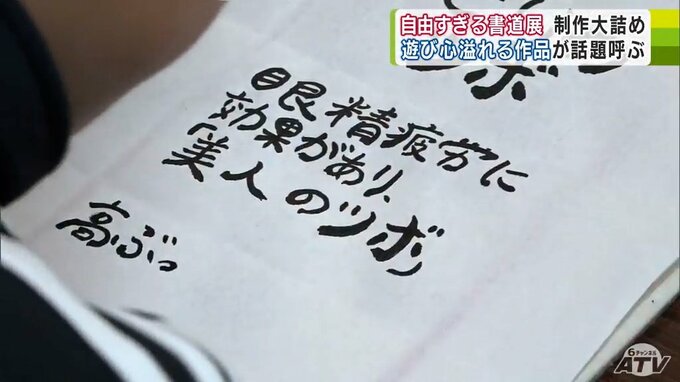 自由すぎる書道展 制作大詰め
遊び心溢れる作品が話題呼ぶ
ツボ
眼精疲労に
効果があり、
「美人のツボ」
高ぶっ
6チャンネル
ATV